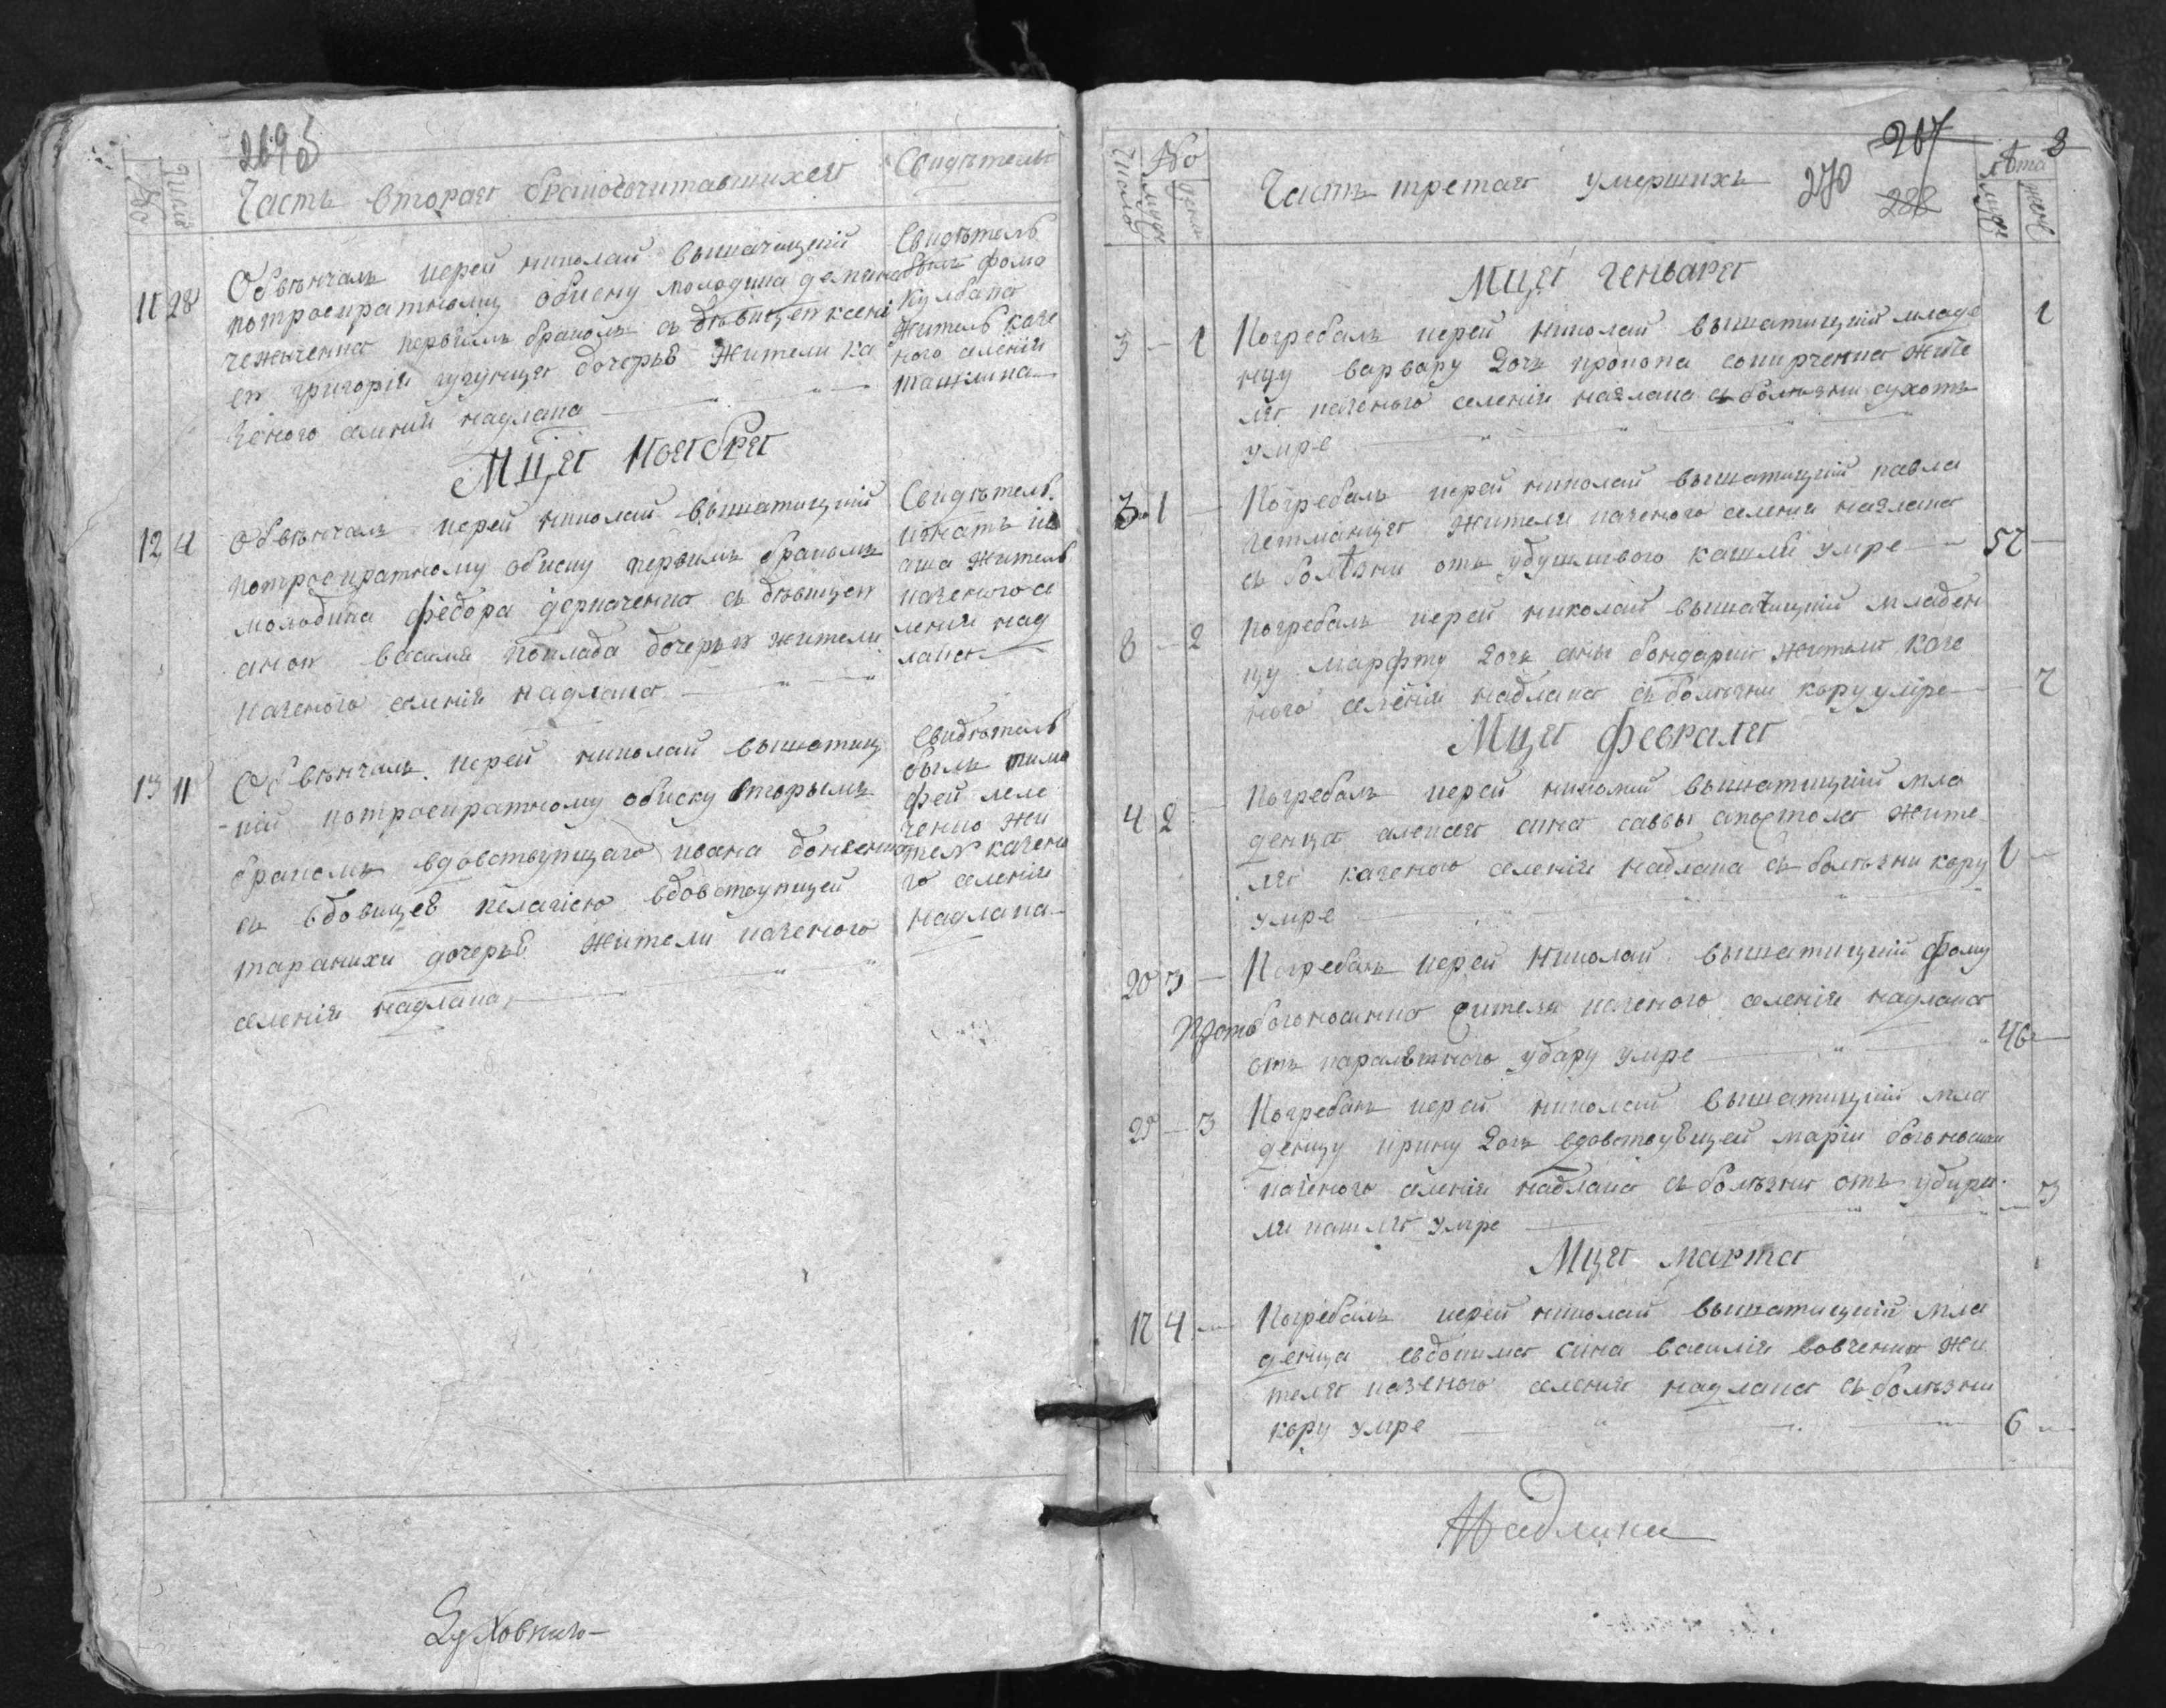 269
№ Число Часть вторая бракосочитавшихся Свидѣтели
11 28 Обвѣнчалъ иерей николай вышатицкий
потроекратному обиску молодика демяна
первимъ бракомъ съ дѣвицею ксени
ею григорія дочерью жители ка
ченого селения надлака
Свидѣтель
былъ фома
кулбака
житель каче
ного селенія
Мцѣя Ноября
12 4 Обвѣнчалъ иерей николай вышатицкий
потроекратному обиску первимъ бракомъ
молодика федора деркаченка съ дѣвицею
василя дочерью жители
каченого селенія надлака
Свидѣтель
игнатъ
житель
каченого се
ления над
лака
13 11 Обвѣнчалъ иерей николай вышатиц
кій потроекратному обиску вторымъ
бракомъ вдовствующаго ивана
съ вдовицею пелагією вдовствующей
таранихи дочерью жители каченого
селенія надлака
Свидѣтель
былъ тимо
фей леле
ченко жи
тель качено
го селенія
надлака
Духовного
Число № мужи жени Часть третая умершихъ 270 267 288 лѣта мужи жен
Мцѣя Генваря
3 1 Погребалъ иерей николай вышатицкий младе
нцу варвару дочь прокопа жите
ля каченого селенія надлака съ болѣзни сухотъ 1
умре
3 1 Погребалъ иерей николай вышатицкий павла
жителя каченого селения надлака
съ болѣзни отъ удушливого кашлю умре 52
8 2 Погребалъ иерей николай вышатицкий младен
цу марфу дочь анны бондарки жители каче
ного селенія надлака съ болѣзни кору умре 2
Мцѣя февраля
4 2 Погребалъ иерей николай вышатицкий мла
денца алексея сина саввы апостола жите
ля каченого селенія надлака съ болѣзни кору 1
умре
20 3 Погребалъ иерей Николай вышатицкий фому
богоносенка жителя каченого селенія надлака
отъ паралѣтного удару умре 46
25 3 Погребалъ иерей николай вышатицкий мла
денцу ирину дочь вдовствующей маріи
каченого селенія надлака съ болѣзни отъ
кашля умре 3
Мцѣя марта
12 4 Погребалъ иерей николай вышатицкий мла
денца евдокима сина василія вовченка жи
теля казеного селения надлака съ болѣзни
кору умре 6
Надлаки